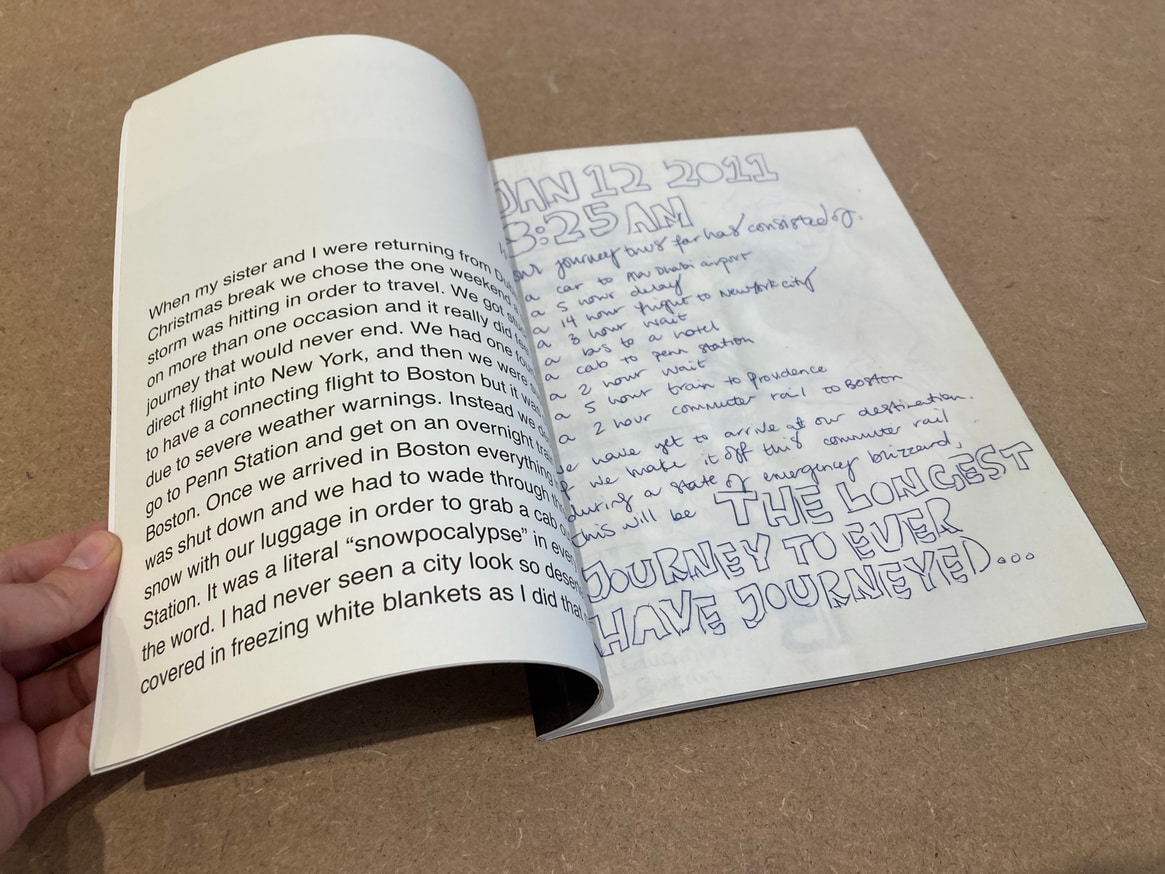 When my sister and I were returning from
Christmas break we chose the one weekend
storm was hitting in order to travel. We got
on more than one occasion and it really did
journey that would never end. We had one
direct flight into New York, and then we were
to have a connecting flight to Boston but it was
due to severe weather warnings. Instead we
go to Penn Station and get on an overnight
Boston. Once we arrived in Boston everything
was shut down and we had to wade through
snow with our luggage in order to grab a cab
Station. It was a literal “snowpocalypse” in
the word. I had never seen a city look so
covered in freezing white blankets as I did that
JAN 12 2011
3:25 AM
our journey thus far has consisted of.
a car to Abu Dhabi airport
a 5 hour delay
a 14 hour flight to New York city
a 3 hour wait
a bus to a hotel
a cab to penn station
a 2 hour wait
a 5 hour train to Providence
a 2 hour commuter rail to Boston
we have yet to arrive at our destination.
if we make it off this commuter rail
during a state of emergency blizzard,
this will be THE LONGEST
JOURNEY TO EVER
HAVE JOURNEYED...